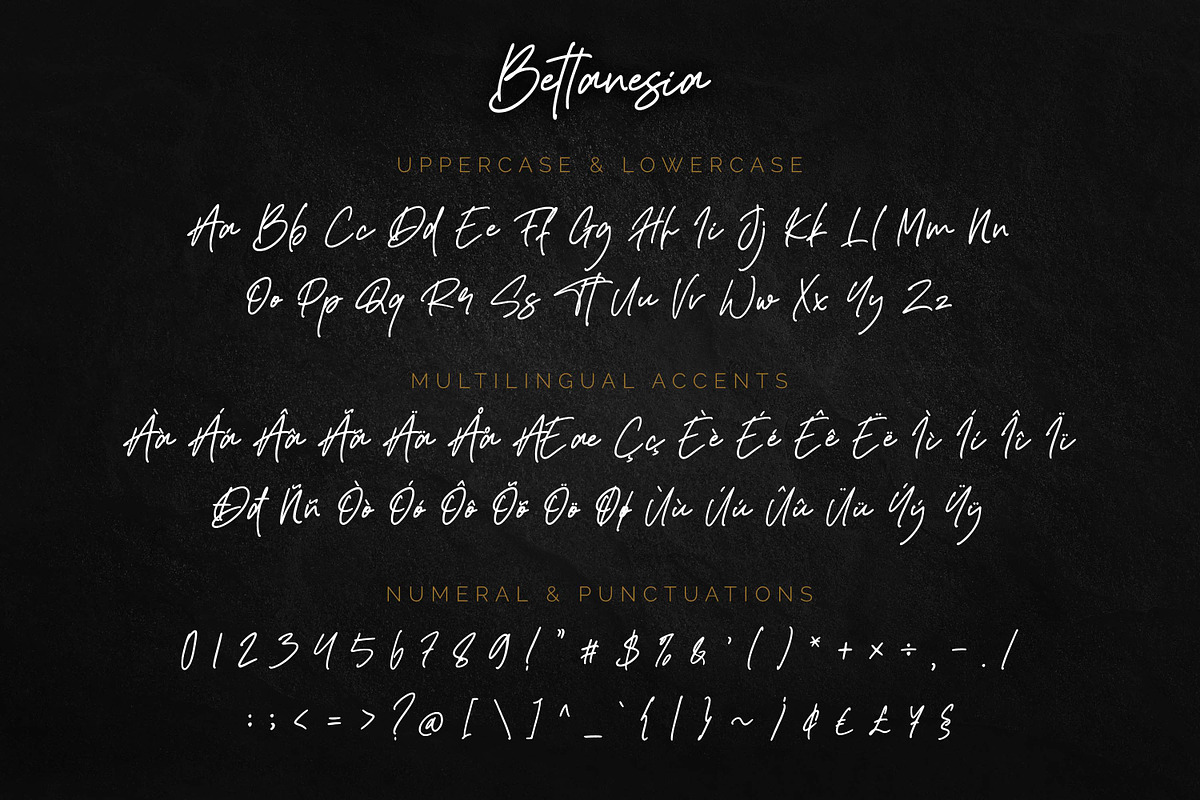 Bettanesia
UPPERCASE & LOWERCASE
Aa Bb Cc Dd Ee Ff Gg Hh Ii Jj Kk Ll Mm Nn
Oo Pp Qq Rr Ss Tt Uu Vv Ww Xx Yy Zz
MULTILINGUAL ACCENTS
Àà Áá Ââ Ãã Ää Åå ÆEae Çç Èè Éé Êê Ëë Ìì Íí Îî Ïï
Đđ Ññ Òò Óó Ôô Õõ Öö Øø Ùù Úú Ûû Üü Ýý Ÿÿ
NUMERAL & PUNCTUATIONS
0 1 2 3 4 5 6 7 8 9 ! " # $ % & ' ( ) * + × ÷ , - . /
: ; < = > ? @ [ \ ] ^ _ ` { | } ~ ¡ ¢ € £ ¥ §